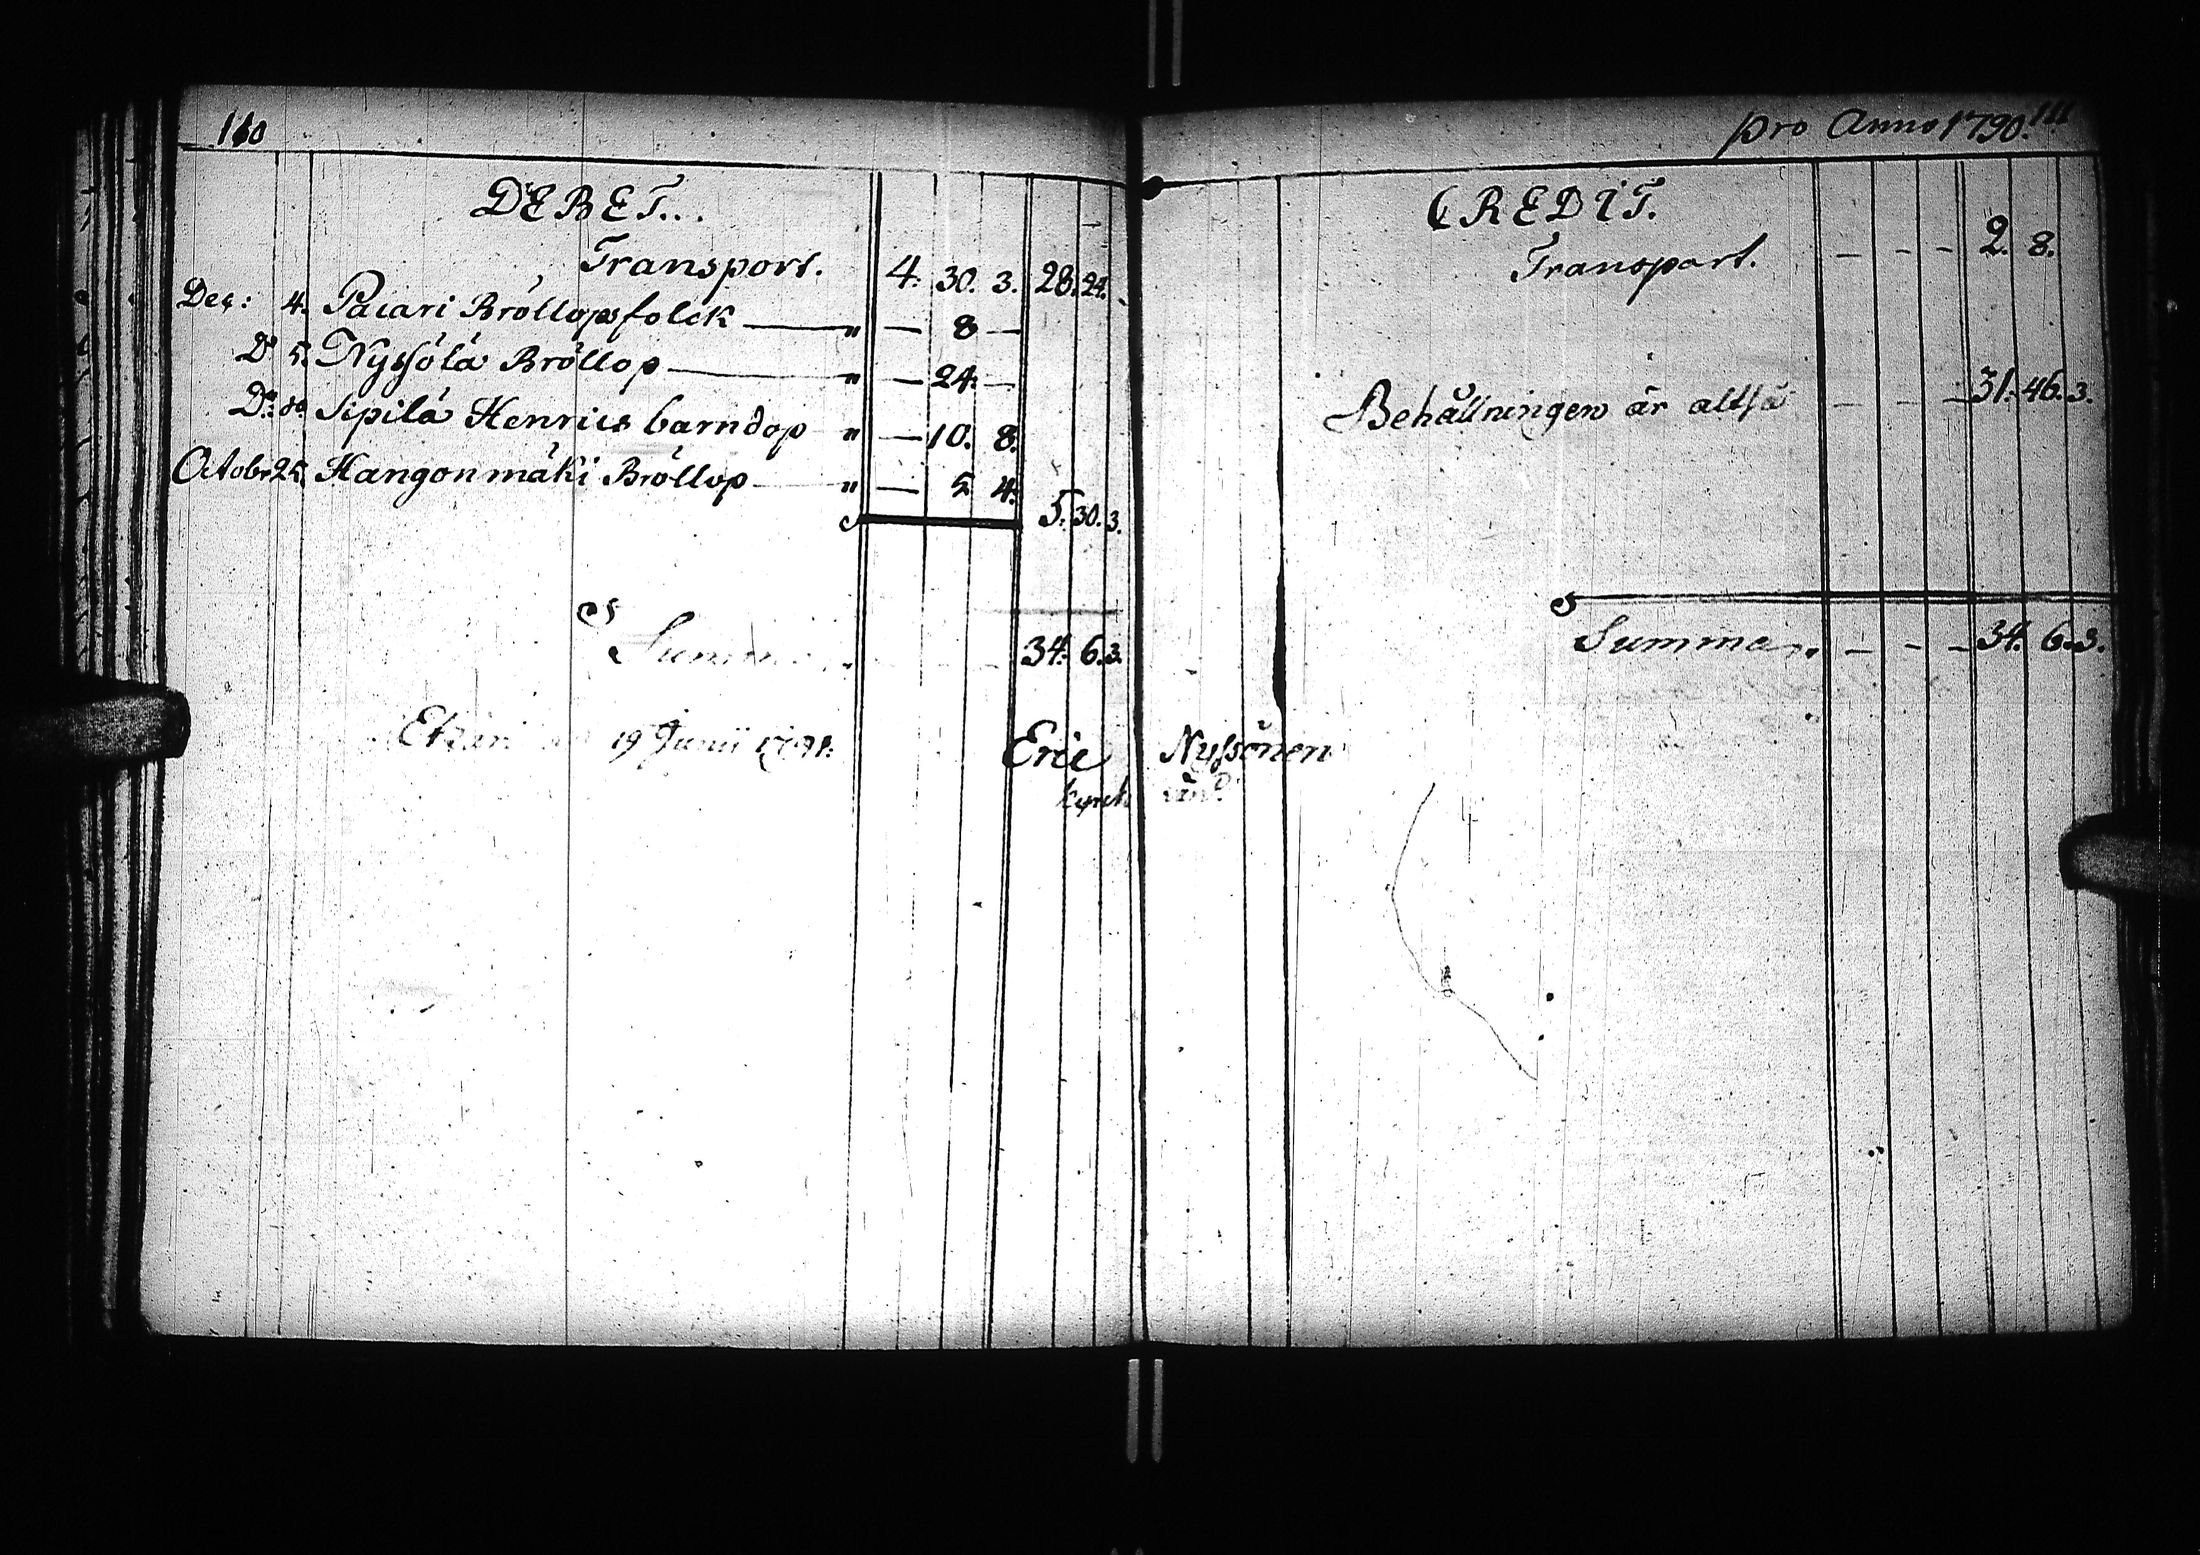 110
DEBET.
Transport. 4. 30. 3. 28. 24. -
Dec: 4. Pacari Bröllopsfolck — " — 8 —
Do 5. Nyssölä Bröllop — " — 24. —
Do Sipilä Henrics barndop " — 10. 8.
Octobr 25. Hangonmäki Bröllop — " — 5 4.
5. 30. 3.
Summa 34. 6. 3.
19 Junii
Eric Nyssönen
kyrck
pro Anno 1790. 111
CREDIT.
Transport. — — — 2. 8.
Behållningen är altså — — — 31. 46. 3.
Summa. — — — 34. 6. 3.